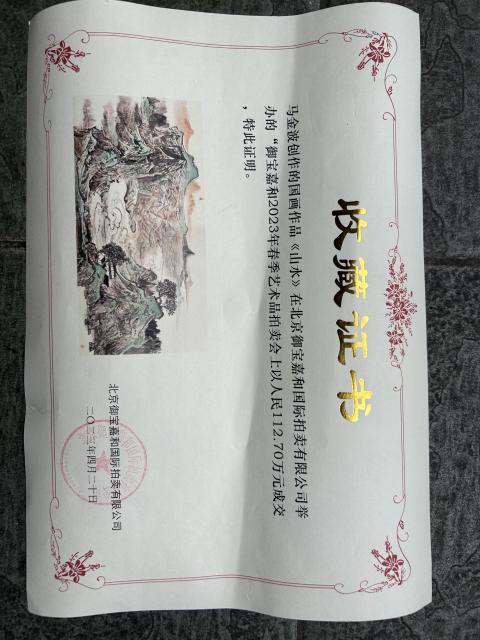 收藏证书
马金波创作的国画作品《山水》在北京御宝嘉和国际拍卖有限公司举
办的“御宝嘉和2023年春季艺术品拍卖会上以人民112.70万元成交
，特此证明。
北京御宝嘉和国际拍卖有限公司
二〇二三年四月二十日